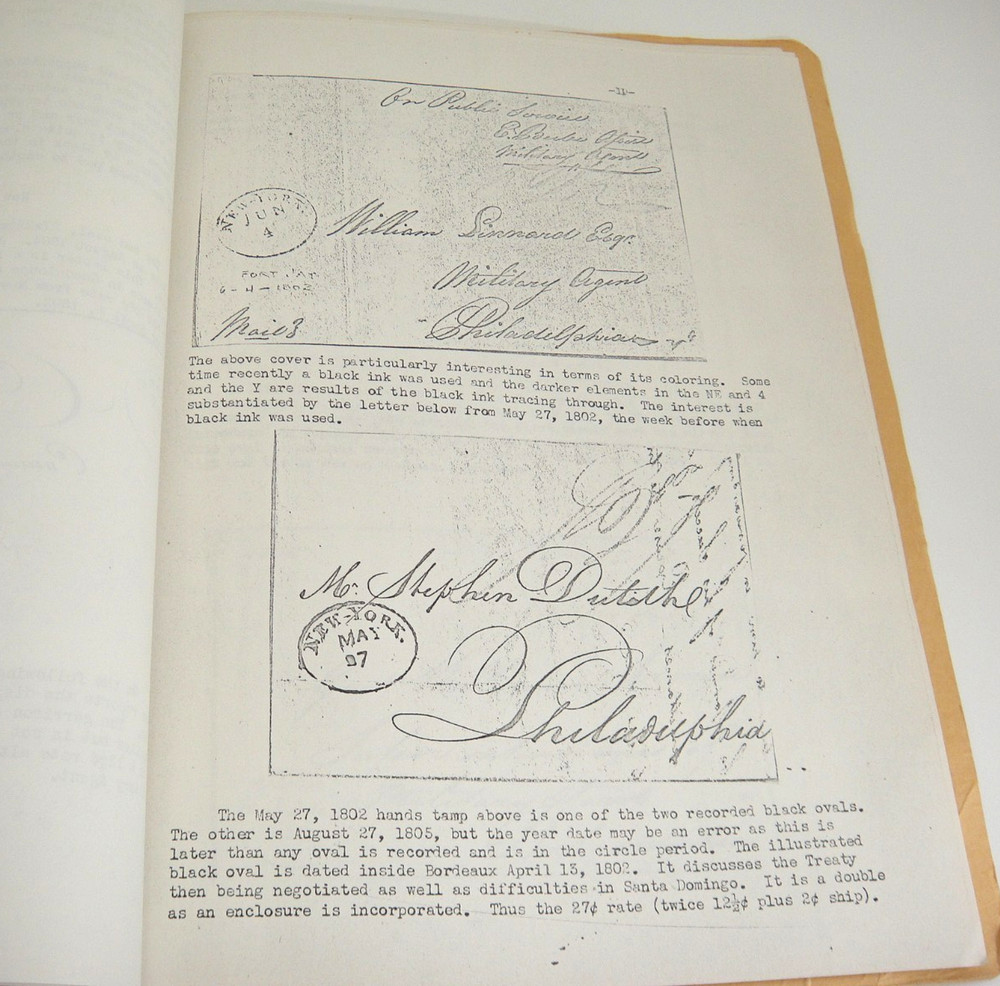 -11-
On Public Service
Military Agent
NEW-YORK.
JUN
4
William Linnard Esqr.
6-4-1802
Military Agent
Mail 3
Philadelphia
The above cover is particularly interesting in terms of its coloring. Some
time recently a black ink was used and the darker elements in the NE and 4
and the Y are results of the black ink tracing through. The interest is
substantiated by the letter below from May 27, 1802, the week before when
black ink was used.
Mr. Stephen Dutilh
NEW-YORK.
MAY
27
Philadelphia
The May 27, 1802 hands tamp above is one of the two recorded black ovals.
The other is August 27, 1805, but the year date may be an error as this is
later than any oval is recorded and is in the circle period. The illustrated
black oval is dated inside Bordeaux April 13, 1802. It discusses the Treaty
then being negotiated as well as difficulties in Santa Domingo. It is a double
as an enclosure is incorporated. Thus the 27¢ rate (twice 12½¢ plus 2¢ ship).